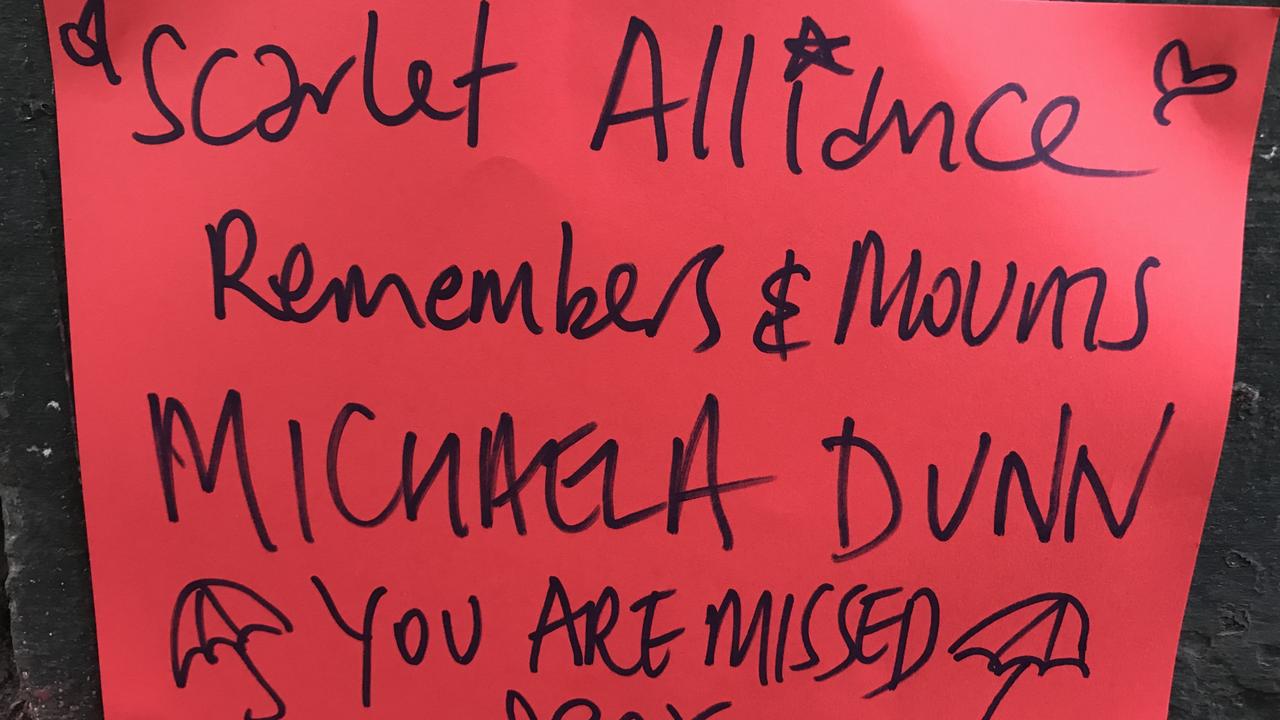 Scarlet Alliance
Remembers & Mourns
MICHAELA DUNN
YOU ARE MISSED